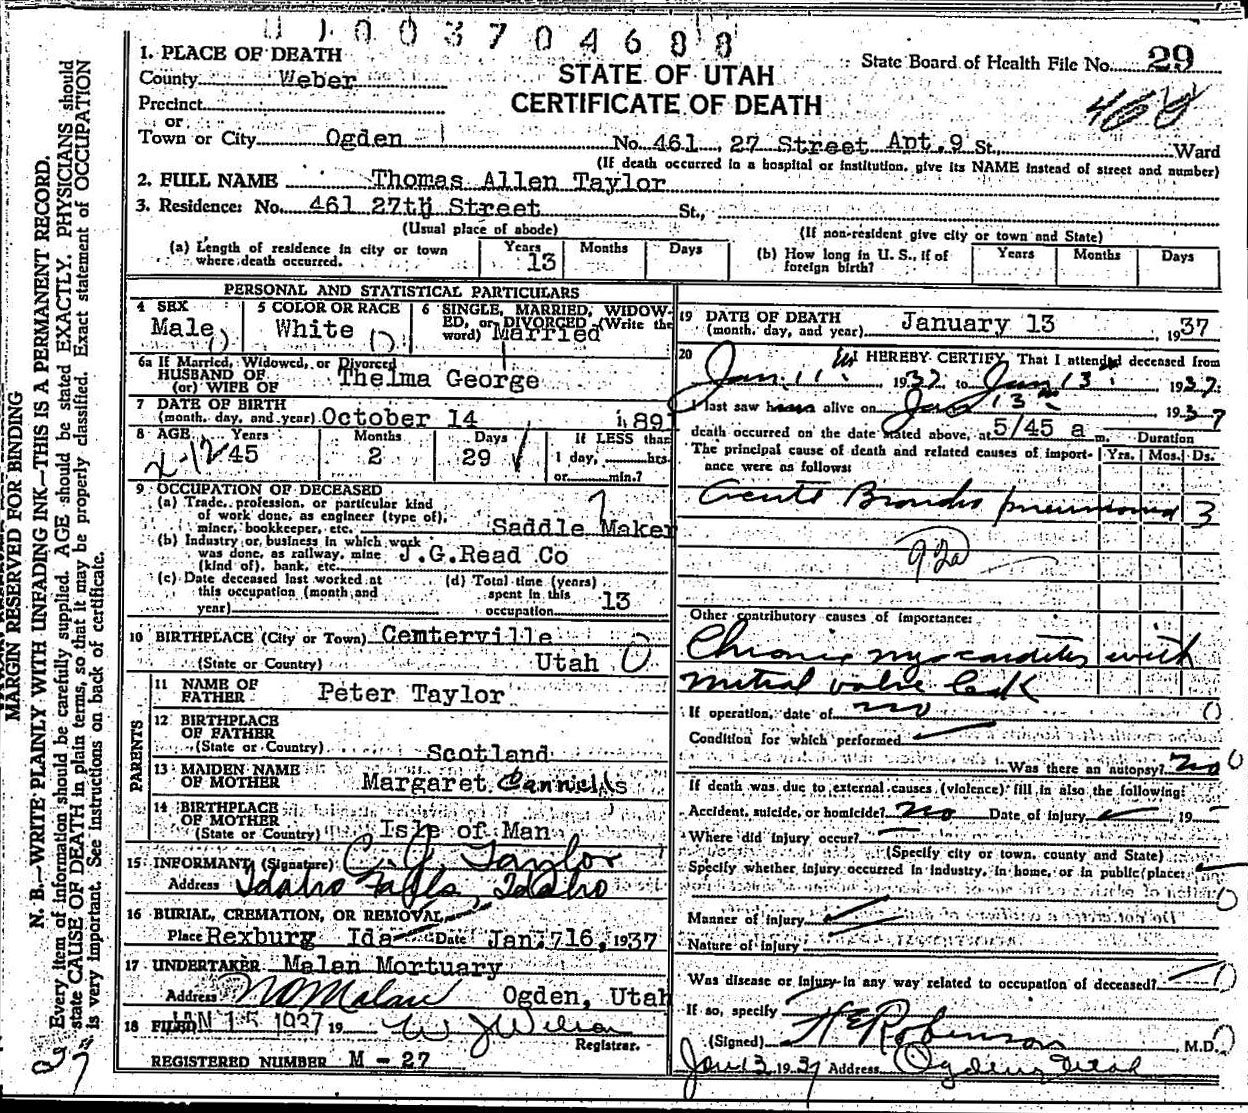 1 1 0 0 3 7 0 4 6 8 8
1. PLACE OF DEATH
County Weber
Precinct
or
Town or City Ogden
STATE OF UTAH
CERTIFICATE OF DEATH
State Board of Health File No. 29
468
No. 461, 27 Street Apt.9 St., Ward
(If death occurred in a hospital or institution, give its NAME instead of street and number)
2. FULL NAME Thomas Allen Taylor
3. Residence: No. 461 27th Street St.,
(Usual place of abode) (If non-resident give city or town and State)
(a) Length of residence in city or town where death occurred. Years 13 Months Days
(b) How long in U. S., if of foreign birth? Years Months Days
PERSONAL AND STATISTICAL PARTICULARS
4 SEX Male
5 COLOR OR RACE White
6 SINGLE, MARRIED, WIDOWED, or DIVORCED (Write the word) Married
6a If Married, Widowed, or Divorced
HUSBAND OF
(or) WIFE OF Thelma George
7 DATE OF BIRTH
(month, day, and year) October 14 1891
8 AGE Years 45 Months 2 Days 29
If LESS than
1 day, hrs.
or min.?
9 OCCUPATION OF DECEASED
(a) Trade, profession, or particular kind
of work done, as engineer (type of),
miner, bookkeeper, etc. Saddle Maker
(b) Industry or business in which work
was done, as railway, mine
(kind of), bank, etc. J.G.Read Co
(c) Date deceased last worked at
this occupation (month and
year)
(d) Total time (years)
spent in this
occupation 13
10 BIRTHPLACE (City or Town) Centerville
(State or Country) Utah
PARENTS
11 NAME OF
FATHER Peter Taylor
12 BIRTHPLACE
OF FATHER
(State or Country) Scotland
13 MAIDEN NAME
OF MOTHER Margaret
14 BIRTHPLACE
OF MOTHER
(State or Country) Isle of Man
15 INFORMANT (Signature) C. J. Taylor
Address Idaho Falls, Idaho
16 BURIAL, CREMATION, OR REMOVAL
Place Rexburg Ida Date Jan. 16, 1937
17 UNDERTAKER Malan Mortuary
Address Ogden, Utah
18 FILED JAN 15 1937 19
Registrar.
REGISTERED NUMBER M - 27
19 DATE OF DEATH
(month, day, and year) January 13 1937
20 I HEREBY CERTIFY, That I attended deceased from
Jan. 11th 1937 to Jan 13th 1937
I last saw him alive on Jan 13th 1937
death occurred on the date stated above, at 5/45 a m. Duration
The principal cause of death and related causes of importance were as follows: Yrs. Mos. Ds.
Acute Broncho pneumonia 3
92a
Other contributory causes of importance:
Chronic myocarditis with
mitral valve leak
If operation, date of no
Condition for which performed
Was there an autopsy? no
If death was due to external causes (violence) fill in also the following:
Accident, suicide, or homicide? no Date of injury 19
Where did injury occur?
(Specify city or town, county and State)
Specify whether injury occurred in industry, in home, or in public place:
Manner of injury
Nature of injury
Was disease or injury in any way related to occupation of deceased?
If so, specify
(Signed) H E Robinson, M.D.
Jan 13 1937 Address Ogden Utah
MARGIN RESERVED FOR BINDING
N. B.—WRITE PLAINLY WITH UNFADING INK—THIS IS A PERMANENT RECORD.
Every item of information should be carefully supplied. AGE should be stated EXACTLY. PHYSICIANS should
state CAUSE OF DEATH in plain terms, so that it may be properly classified. Exact statement of OCCUPATION
is very important. See instructions on back of certificate.